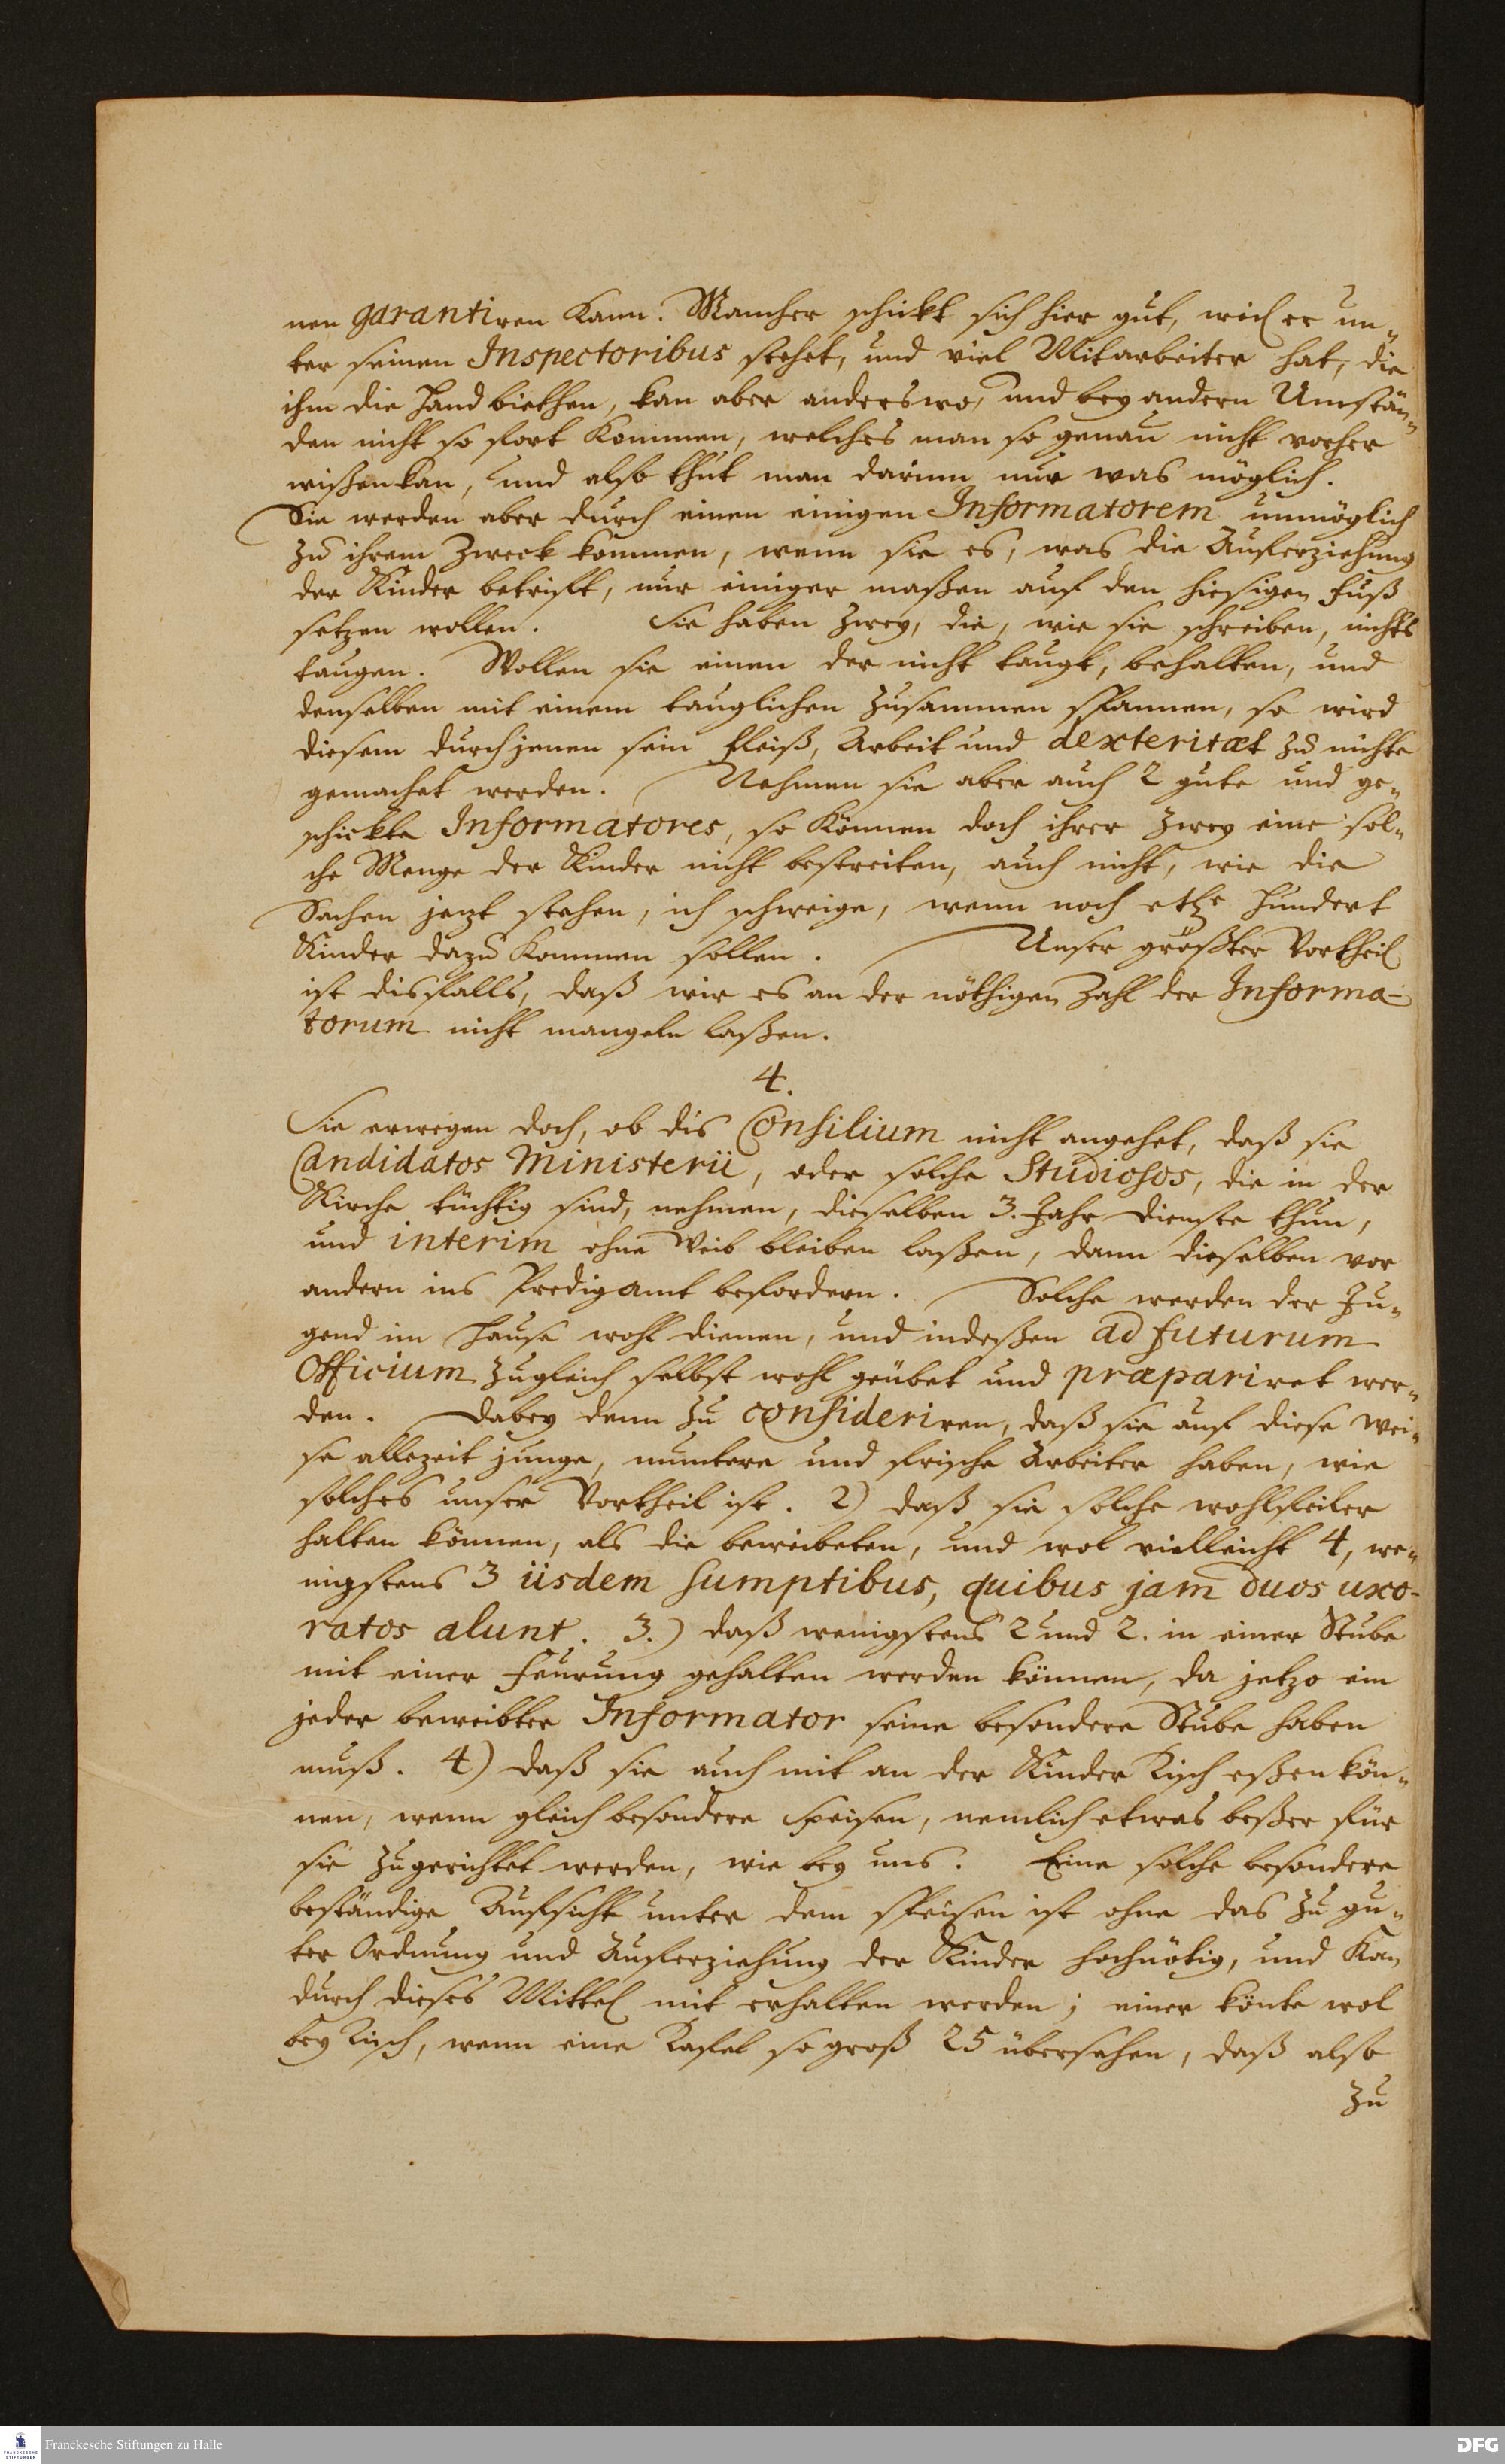 nen garantiren kann. Mancher schickt sich hier gut, weil er un-
ter seinen Inspectoribus stehet, und viel Mitarbeiter hat, die
ihm die Hand biethen, kan aber anderswo, und bey andern Umstän-
den nicht so fort kommen, welches man so genau nicht vorher
wißen kan, und also thut man darinn nur was möglich.
Sie werden aber durch einen einigen Informatorem unmöglich
zu ihrem Zweck kommen, wenn sie es, was die Auferziehung
der Kinder betrifft, nur einiger maßen auf den hiesigen Fuß
setzen wollen. Sie haben zwey, die, wie sie schreiben, nichts
taugen. Wollen sie einen der nicht taugt, behalten, und
denselben mit einem tauglichen zusammen spannen, so wird
diesem durch jenen sein Fleiß, Arbeit und dexteritæt zu nichte
gemachet werden. Nehmen sie aber auch 2 gute und ge-
schickte Informatores, so können doch ihrer zwey eine sol-
che Menge der Kinder nicht bestreiten, auch nicht, wie die
Sachen jezt stehen, ich schweige, wenn noch etl. hundert
Kinder dazu kommen sollen. Unser größter Vortheil
ist disfalls, daß wir es an der nöthigen Zahl der Informa-
torum nicht mangeln laßen.
4.
Sie erwegen doch, ob dis Consilium nicht angehet, daß sie
Candidatos Ministerii, oder solche Studiosos, die in der
Kirche tüchtig sind, nehmen, dieselben 3. Jahr Dienste thun,
und interim ohne Weib bleiben laßen, dann dieselben vor
andern ins Predigamt befordern. Solche werden der Ju-
gend im Hause wohl dienen, und indeßen ad futurum
Officium zugleich selbst wohl geübet und præpariret wer-
den. Dabey denn zu consideriren, daß sie auf diese Wei-
se allezeit junge, muntere und frische Arbeiter haben, wie
solches unser Vortheil ist. 2) daß sie solche wohlfeiler
halten können, als die beweibeten, und wol vielleicht 4, we-
nigstens 3 iisdem sumptibus, quibus jam duos uxo-
ratos alunt. 3.) daß wenigstens 2 und 2. in einer Stube
mit einer Feurung gehalten werden können, da jetzo ein
jeder beweibter Informator seine besondere Stube haben
muß. 4) daß sie auch mit an der Kinder Tisch eßen kön-
nen, wenn gleich besondere Speisen, nemlich etwas beßer für
sie zugerichtet werden, wie bey uns. Eine solche besondere
beständige Aufsicht unter dem Speisen ist ohne das zu gu-
ter Ordnung und Auferziehung der Kinder hochnötig, und kan
durch dieses Mittel mit erhalten werden; einer könte wol
bey Tisch, wenn eine Tafel so groß 25 übersehen, daß also
zu
Franckesche Stiftungen zu Halle
DFG